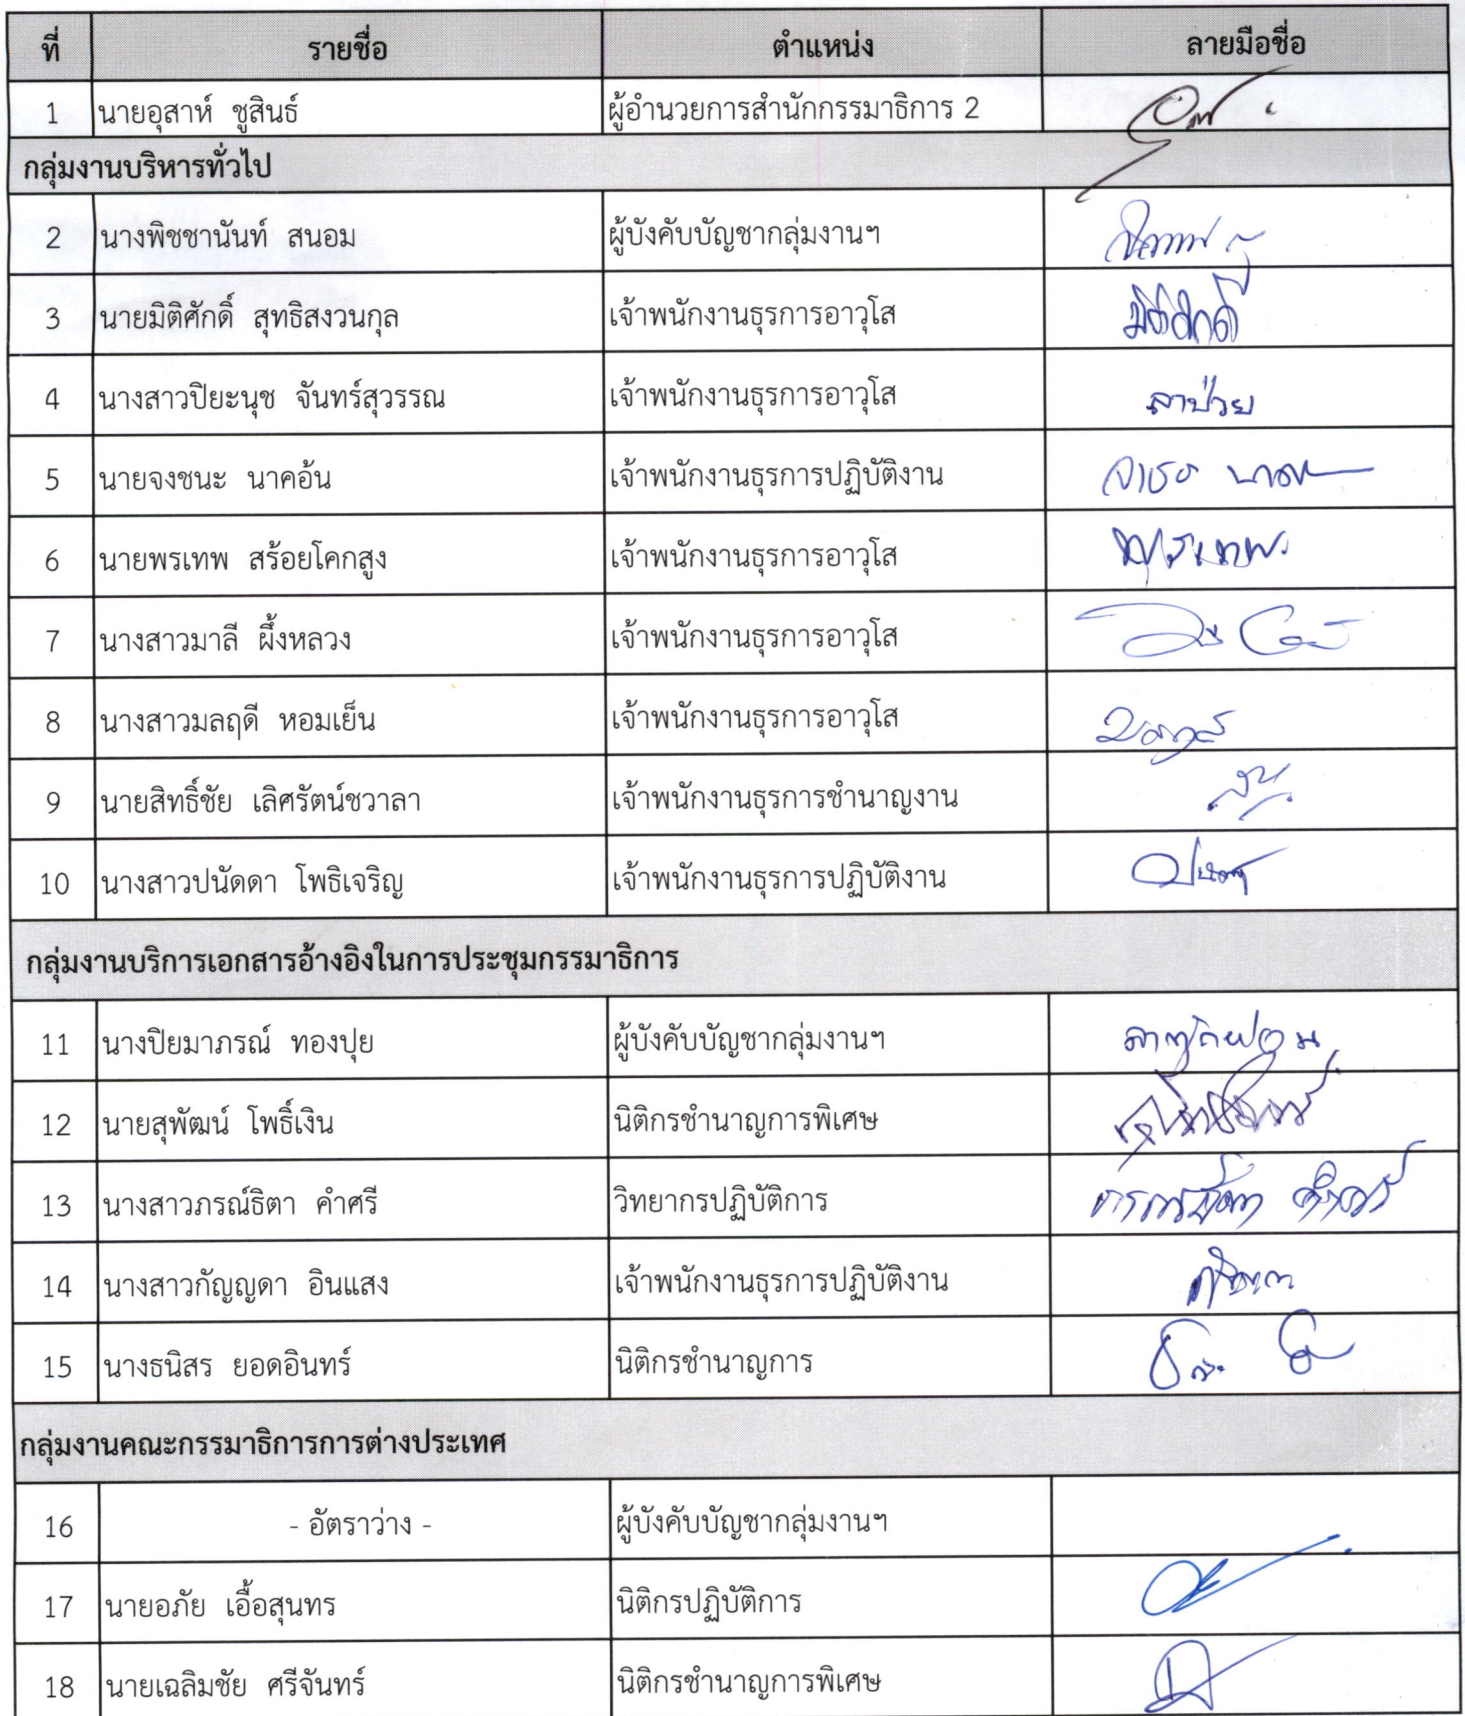 ที่ รายชื่อ ตำแหน่ง ลายมือชื่อ
1 นายอุสาห์ ชูสินธ์ ผู้อำนวยการสำนักกรรมาธิการ 2
กลุ่มงานบริหารทั่วไป
2 นางพิชชานันท์ สนอม ผู้บังคับบัญชากลุ่มงานฯ
3 นายมิติศักดิ์ สุทธิสงวนกุล เจ้าพนักงานธุรการอาวุโส มิติศักดิ์
4 นางสาวปิยะนุช จันทร์สุวรรณ เจ้าพนักงานธุรการอาวุโส ลาป่วย
5 นายจงชนะ นาคอ้น เจ้าพนักงานธุรการปฏิบัติงาน
6 นายพรเทพ สร้อยโคกสูง เจ้าพนักงานธุรการอาวุโส พรเทพ
7 นางสาวมาลี ผึ้งหลวง เจ้าพนักงานธุรการอาวุโส
8 นางสาวมลฤดี หอมเย็น เจ้าพนักงานธุรการอาวุโส
9 นายสิทธิ์ชัย เลิศรัตน์ชวาลา เจ้าพนักงานธุรการชำนาญงาน
10 นางสาวปนัดดา โพธิเจริญ เจ้าพนักงานธุรการปฏิบัติงาน
กลุ่มงานบริการเอกสารอ้างอิงในการประชุมกรรมาธิการ
11 นางปิยมาภรณ์ ทองปุย ผู้บังคับบัญชากลุ่มงานฯ
12 นายสุพัฒน์ โพธิ์เงิน นิติกรชำนาญการพิเศษ
13 นางสาวภรณ์ธิตา คำศรี วิทยากรปฏิบัติการ
14 นางสาวกัญญดา อินแสง เจ้าพนักงานธุรการปฏิบัติงาน
15 นางธนิสร ยอดอินทร์ นิติกรชำนาญการ
กลุ่มงานคณะกรรมาธิการการต่างประเทศ
16 - อัตราว่าง - ผู้บังคับบัญชากลุ่มงานฯ
17 นายอภัย เอื้อสุนทร นิติกรปฏิบัติการ
18 นายเฉลิมชัย ศรีจันทร์ นิติกรชำนาญการพิเศษ